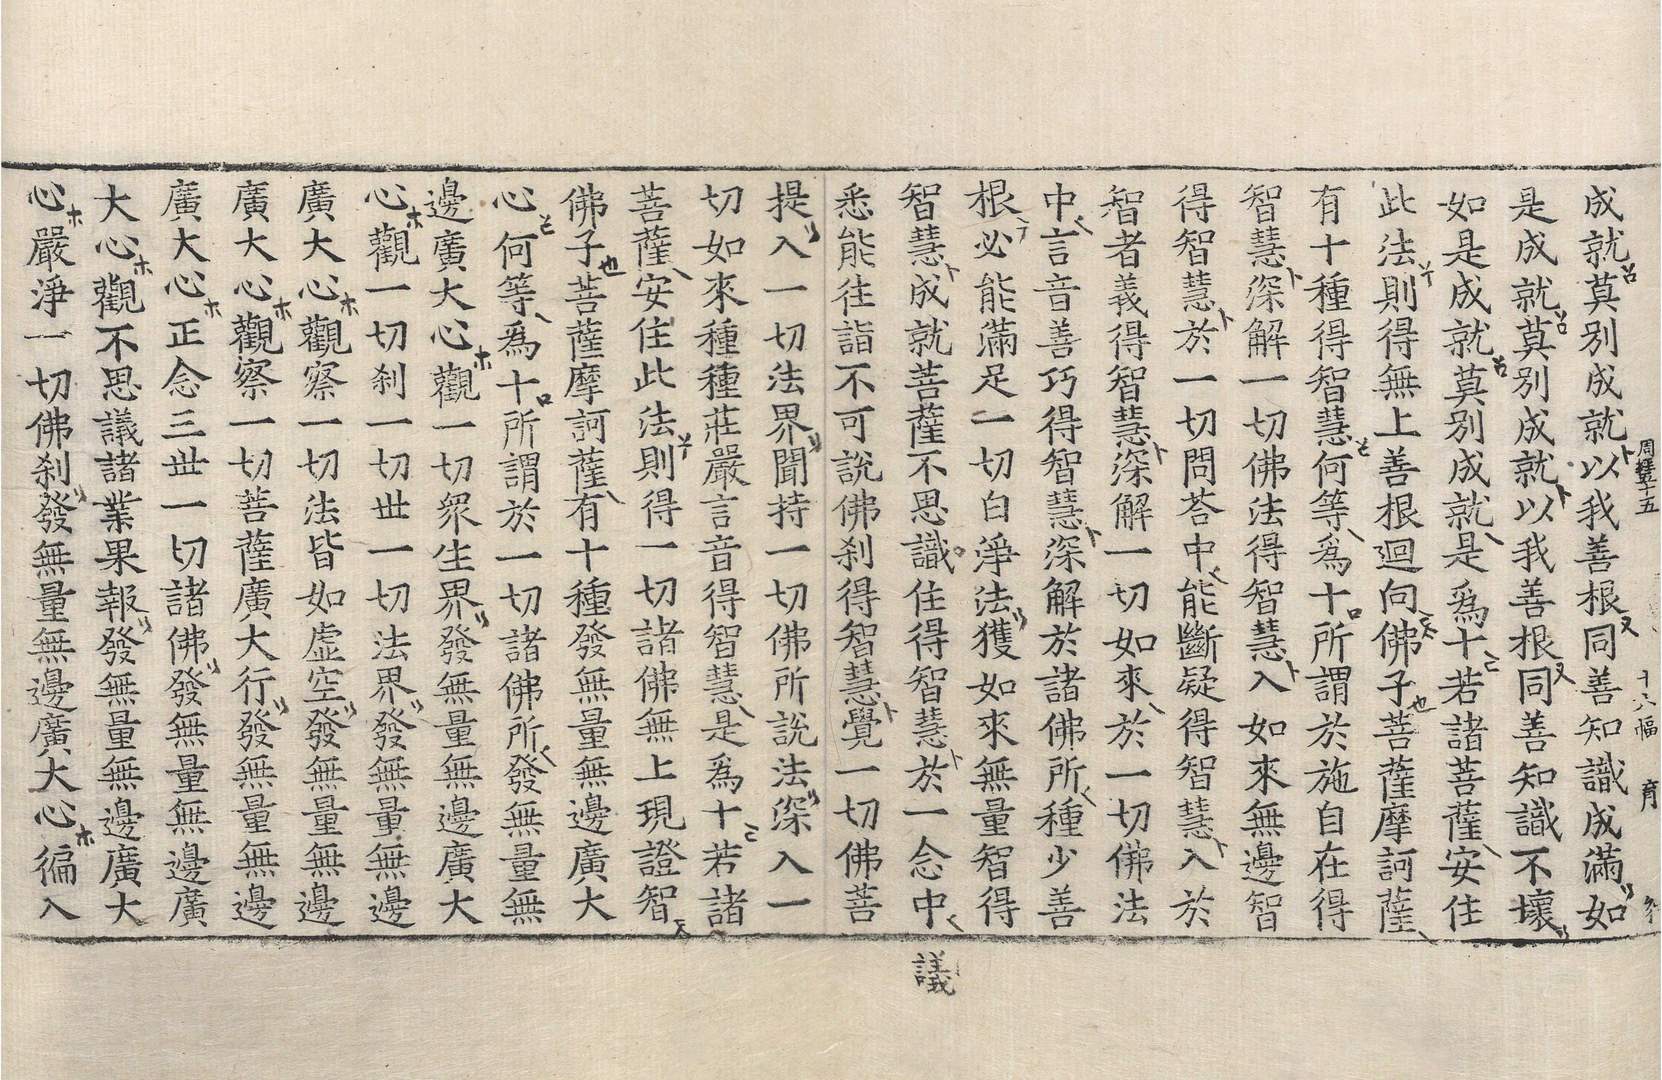 周經五十五 十八幅 育
成就莫別成就以我善根同善知識成滿如
是成就莫別成就以我善根同善知識不壞
如是成就莫別成就是爲十若諸菩薩安住
此法則得無上善根迴向佛子菩薩摩訶薩
有十種得智慧何等爲十所謂於施自在得
智慧深解一切佛法得智慧入如來無邊智
得智慧於一切問荅中能斷疑得智慧入於
智者義得智慧深解一切如來於一切佛法
中言音善巧得智慧深解於諸佛所種少善
根必能滿足一切白淨法獲如來無量智得
智慧成就菩薩不思識住得智慧於一念中
議
悉能往詣不可說佛刹得智慧覺一切佛菩
提入一切法界聞持一切佛所說法深入一
切如來種種莊嚴言音得智慧是爲十若諸
菩薩安住此法則得一切諸佛無上現證智
佛子菩薩摩訶薩有十種發無量無邊廣大
心何等爲十所謂於一切諸佛所發無量無
邊廣大心觀一切衆生界發無量無邊廣大
心觀一切刹一切世一切法界發無量無邊
廣大心觀察一切法皆如虛空發無量無邊
廣大心觀察一切菩薩廣大行發無量無邊
廣大心正念三世一切諸佛發無量無邊廣
大心觀不思議諸業果報發無量無邊廣大
心嚴淨一切佛刹發無量無邊廣大心徧入